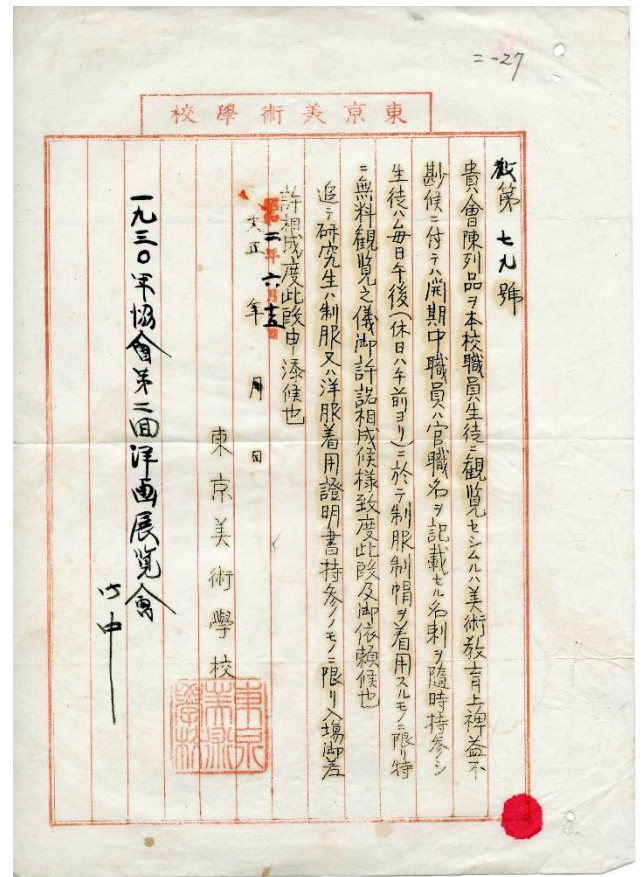 二-27
東京美術學校
教第七九號
貴會陳列品ヲ本校職員生徒ニ観覧セシムルハ美術教育上裨益不
尠候ニ付テハ開期中職員ハ官職名ヲ記載セル名刺ヲ隨時持参シ
生徒ハ毎日午後(休日ハ午前ヨリ)ニ於テ制服制帽ヲ着用スルモノニ限リ特
ニ無料観覧之儀御許諾相成候様致度此段及御依頼候也
追テ研究生ハ制服又ハ洋服着用證明書持参ノモノニ限リ入場御差
許相成度此段申添候也
昭和二年六月十五日
大正 年 月 日
東京美術學校
東京美術學校
一九三〇年協會第二回洋画展覧會
御中